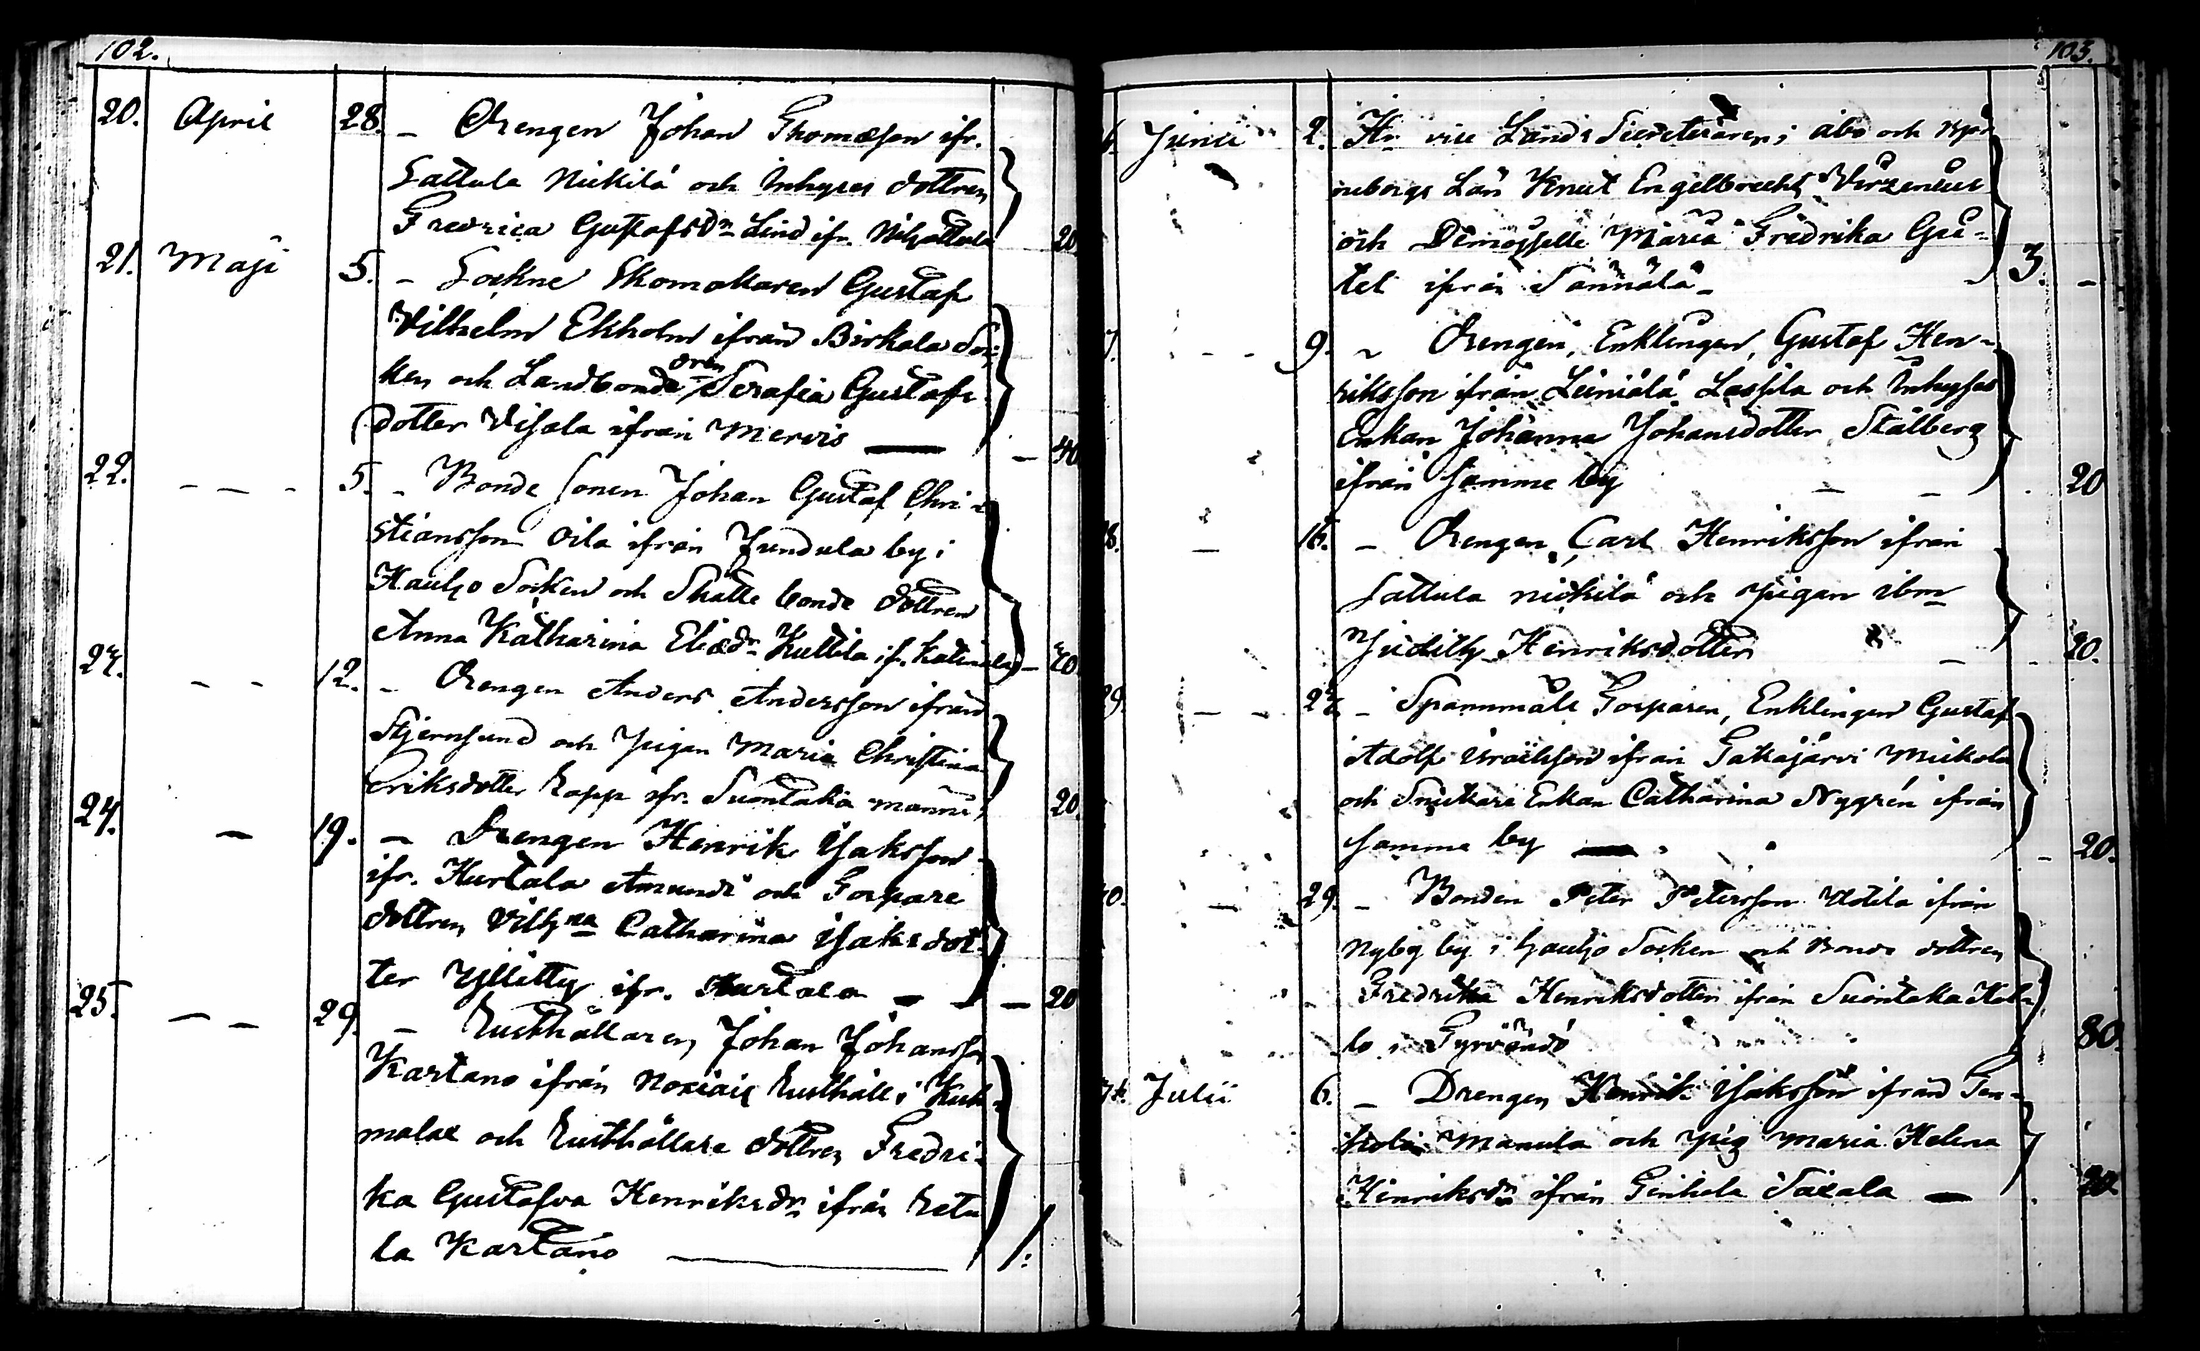 102.
20. April 28. – Drengen Johan Thomasson ifr.
Sattula Nickilä och Inhyses dottren
Fredrica Gustafsdr Lind ifr. 20
21. Maji 5. – Sockne Skomakaren Gustaf
Vilhelm Ekholm ifrån Birkala Soc-
ken och Landbonde dren Serafia Gustafs
dotter Uusala ifrån Mervis — – 40
22. – – – 5. – Bonde Sonen Johan Gustaf Chri-
stiansson Oila ifrån Jundula by i
Hauho Socken och Skatte bonde dottren
Anna Katharina Eliædr Kuttila if. – 20
23. – – 12. – Drengen Anders Andersson ifrån
Stjernsund och Pigan Maria Christina
Eriksdotter Rapp ifr. Suontaka Manni 20
24. – 19. – Drengen Henrik Isaksson
ifr. Hurtala Amundi och Torpare
dottren Vilhna Catharina Isaksdot-
ter Yllitty ifr. Hurtala – – – 20
25. – – 29. – Rusthållaren Johan Johansson
Kartano ifrån Noxiais Rusthåll i Kuh-
malax och Rusthållare dottren Fredri-
ka Gustafva Henriksdr ifrån Retu
la Kartano — 1.
103.
6. Junii 2. Hr vice Lands Secreteraren i Åbo och Björ
neborgs Län Knut Engelbrecht Virzenius
och Demoiselle Maria Fredrika Gue-
tet ifrån Sannälä – 3. –
7. – – – 9. – Drengen, Enklingen, Gustaf Hen-
riksson ifrån Leiniälä Lassila och Inhyses
Enkan Johanna Johansdotter Stålberg
ifrån samma by – – . 20
8. – 16. – Drengen Carl Henriksson ifrån
Sattula Nickilä och Pigan ibm
Judith Henriksdotter – – 20.
9. – – 24. – Spannmåls Torparen, Enklingen Gustaf
Adolf Israelsson ifrån Takajärvi Mickola
och Snickare Enkan Catharina Nygrén ifrån
samma by — – 20.
0. – 29. – Bonden Peter Petersson Uotila ifrån
Nyby by i Hauho Socken och Bonde dottren
Fredrika Henriksdotter ifrån Suontaka
lo i Tyrvändö 80.
Julii 6. – Drengen Henrik Isaksson ifrån
Manula och Pig Maria Helena
Henriksdr ifrån Saxala — . 20